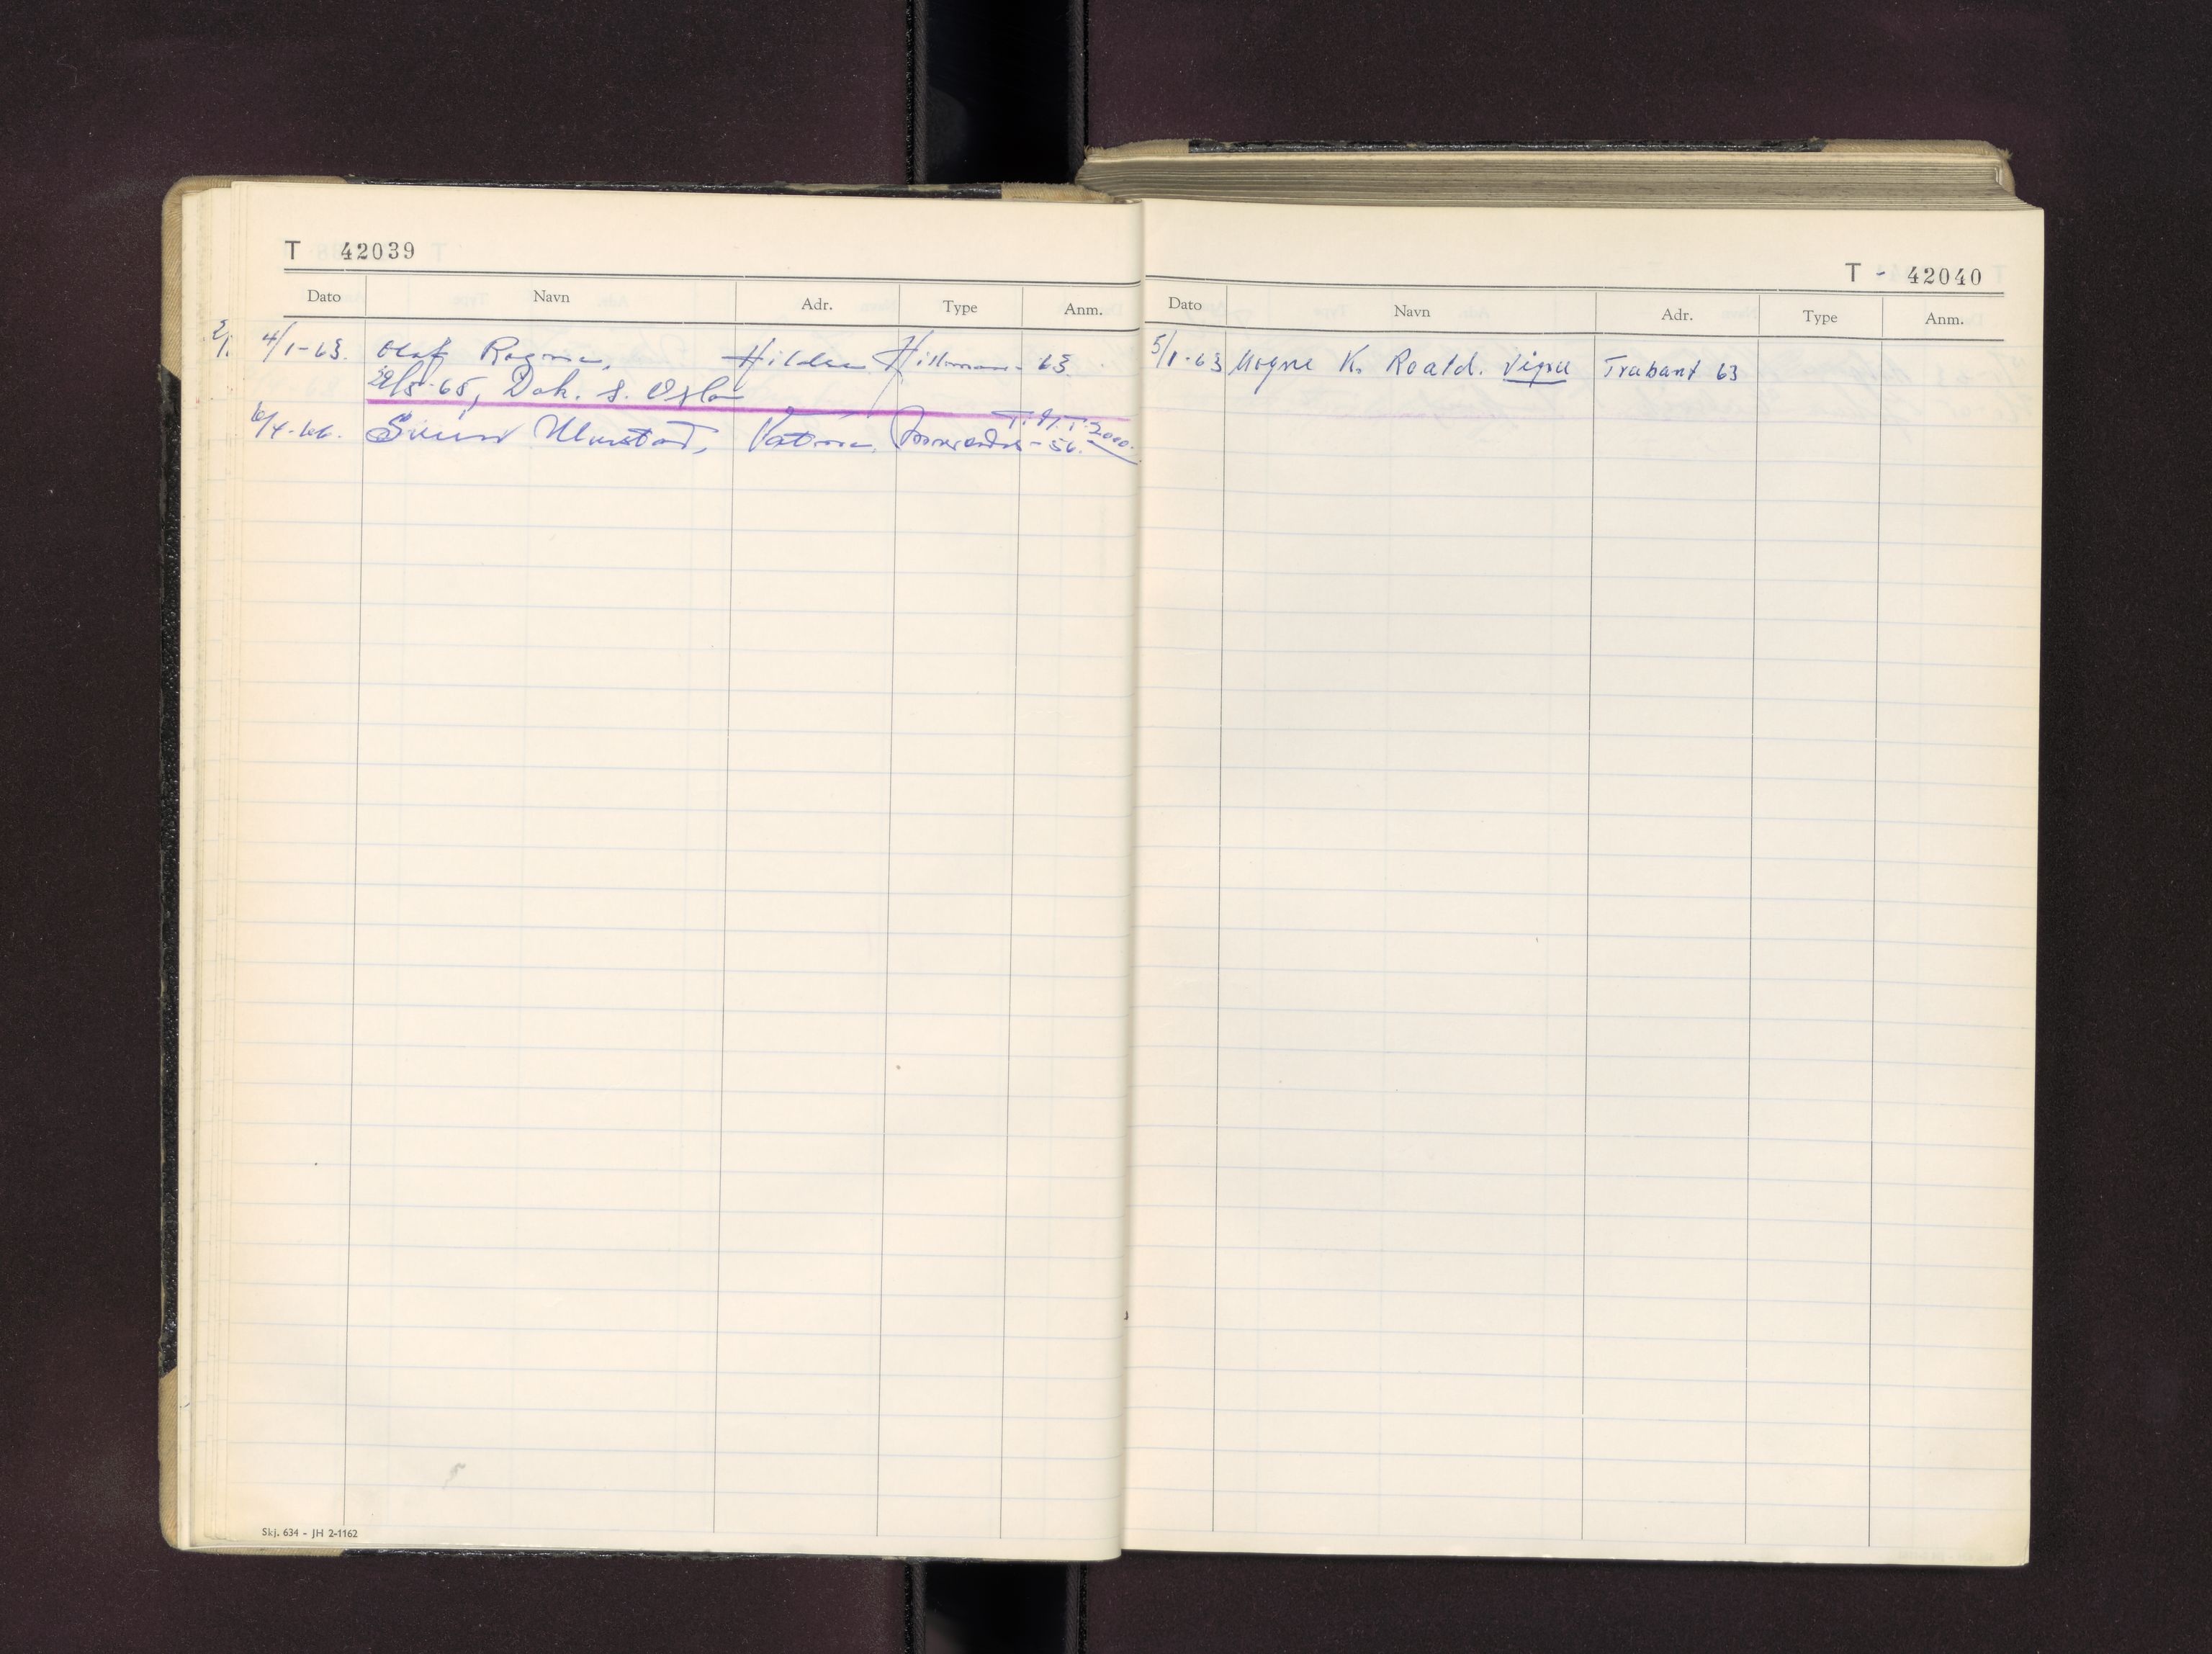 T 42039
Dato Navn Adr. Type Anm.
4/1-63. Olaf Ragna, Hildre Hillman - 63.
29/5-65, Dok. s. Oslo
6/4-66. Vatne, - 56. 2000.
Skj. 634 - JH 2-1162
T - 42040
Dato Navn Adr. Type Anm.
5/1-63 Mogne K. Roald. Vigra Trabant 63